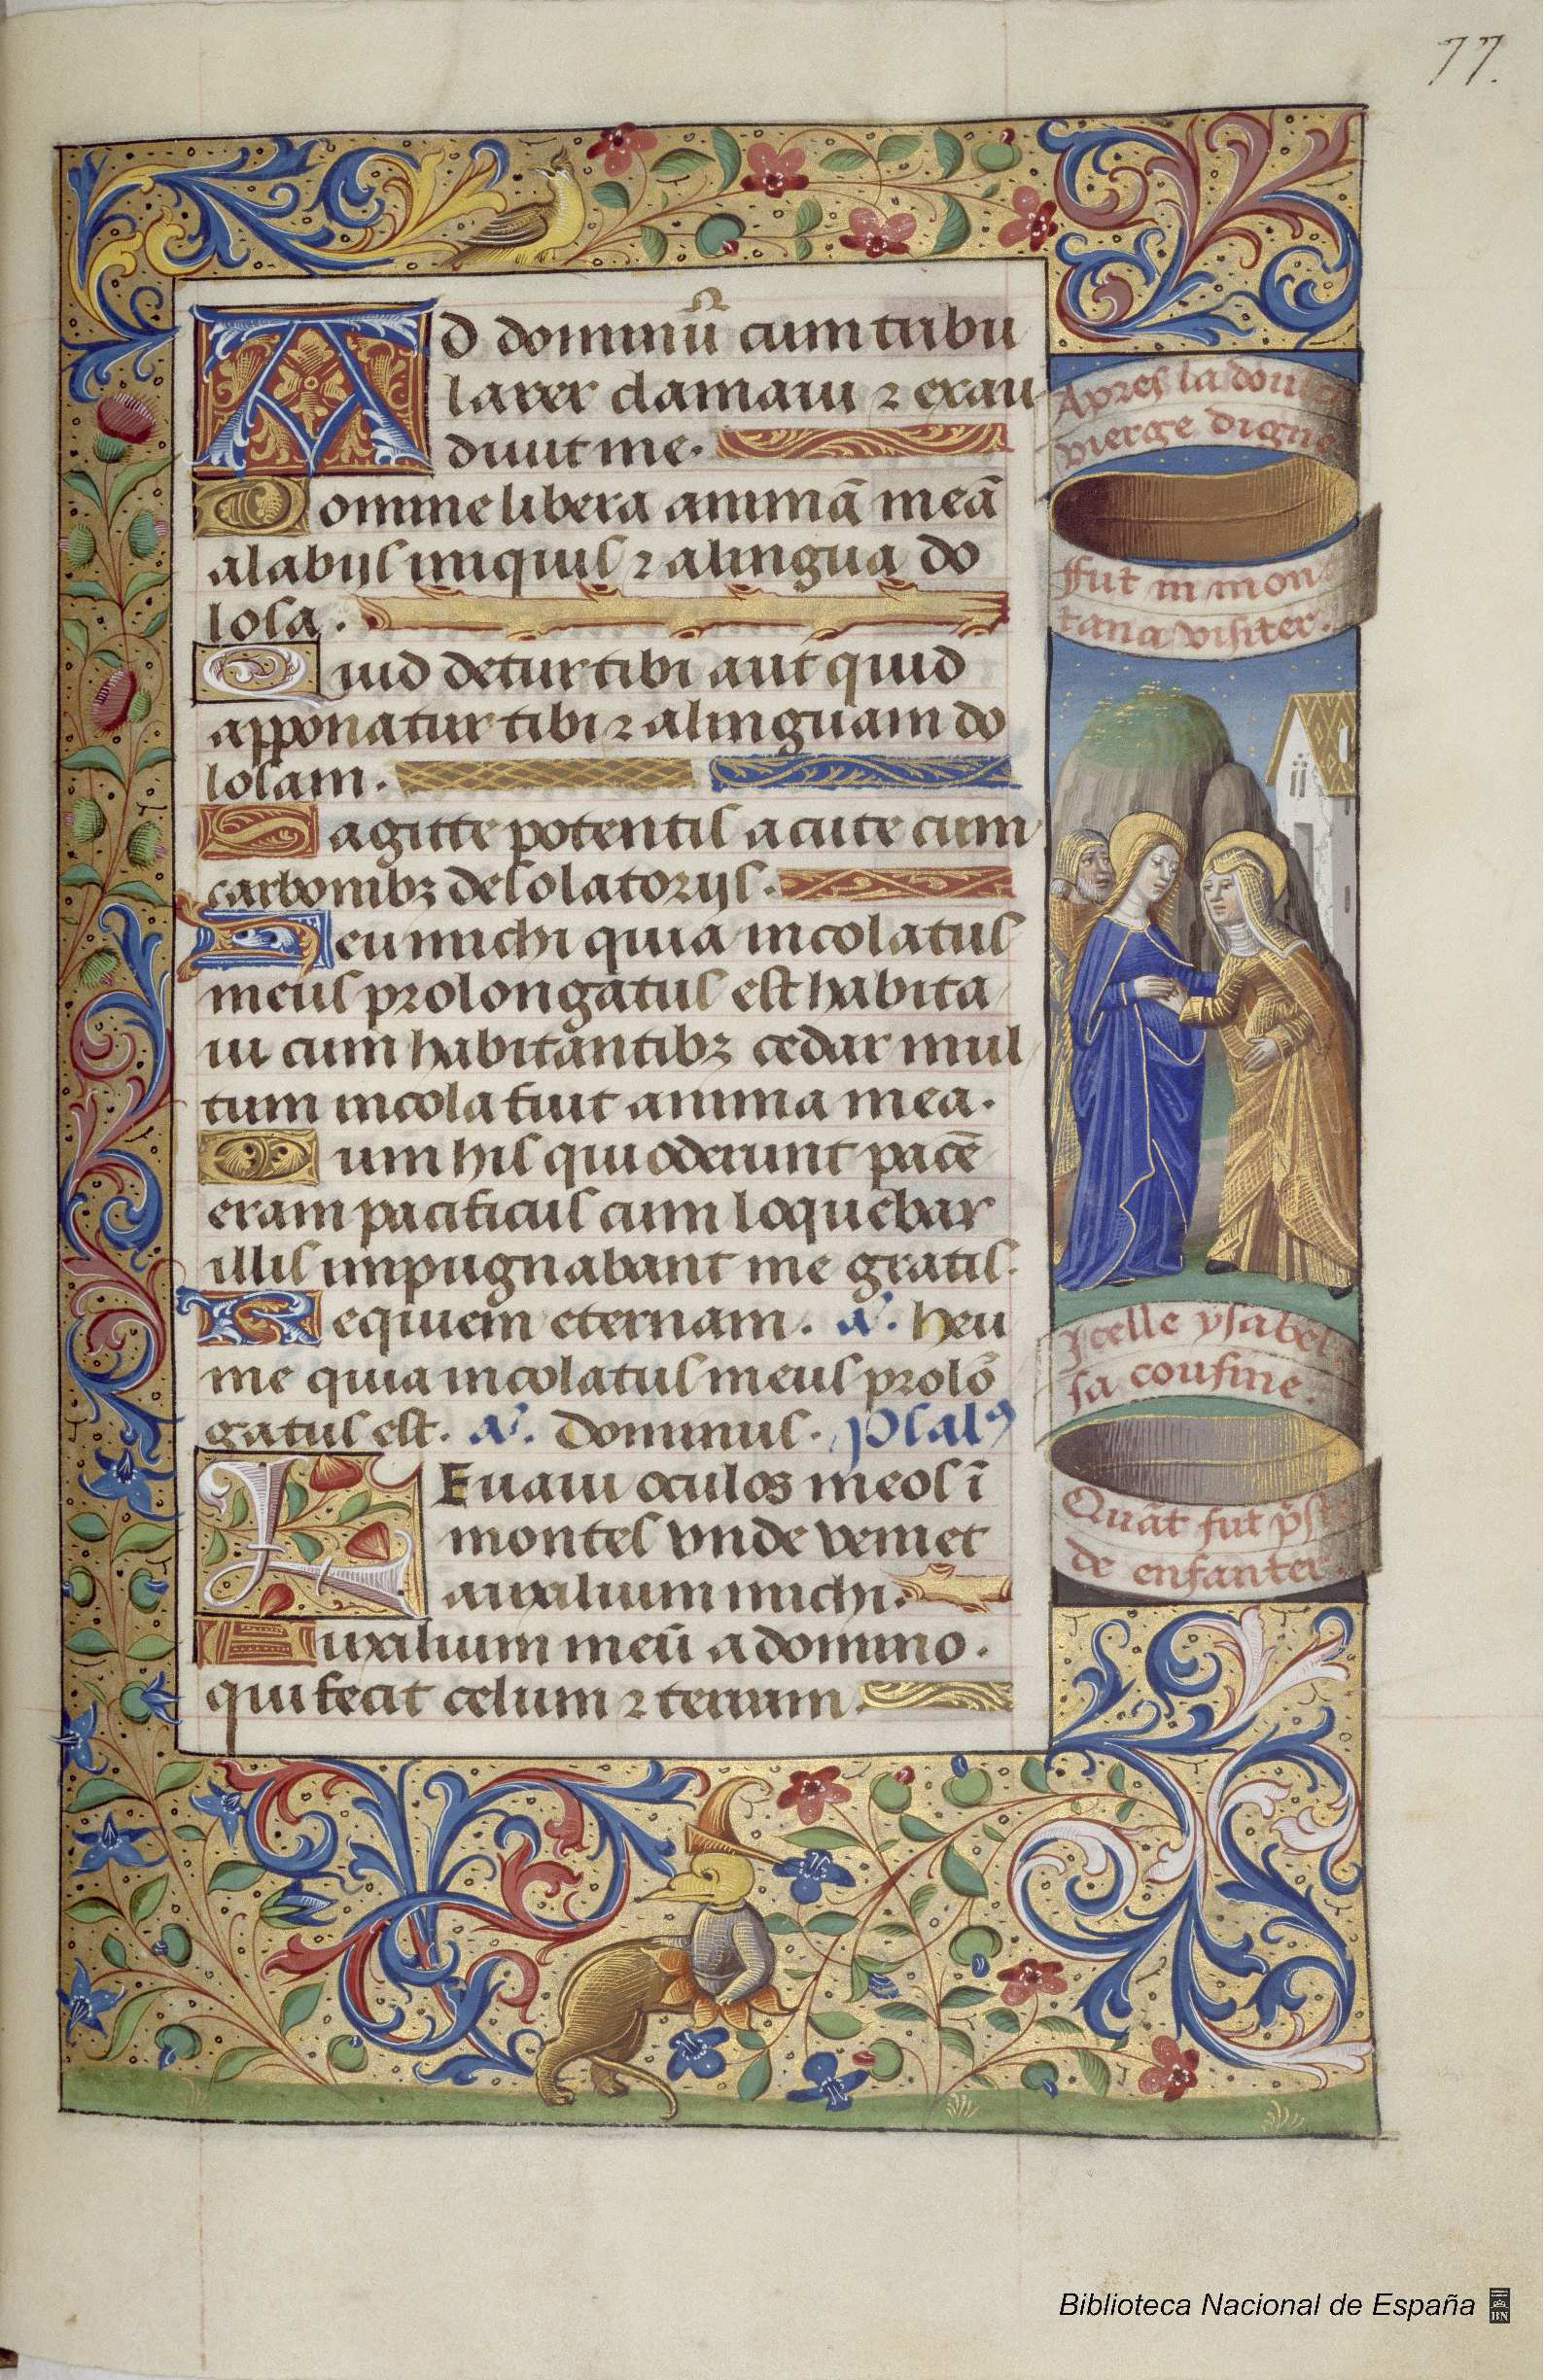 77.
Ad dominū cum tribu
larer clamavi ⁊ exau
divit me.
Domine libera animā meā
a labijs iniquis ⁊ a lingua do
losa.
Quid detur tibi aut quid
apponatur tibi ⁊ a linguam do
losam.
Sagitte potentis acute cum
carbonibꝫ desolatorijs.
Heu michi quia incolatus
meus prolongatus est habita
vi cum habitantibꝫ cedar mul
tum incola fuit anima mea.
Cum his qui oderunt pacē
eram pacificus cum loquebar
illis impugnabant me gratis.
Requiem eternam. a᷒. heu
me quia incolatus meus prolō
gatus est. a᷒. Dominus. psalꝰ
LEvavi oculos meos ī
montes vnde veniet
auxilium michi.
Auxilium meū a domino.
qui fecit celum ⁊ terram.
Apres la doulce
vierge digne
Fut in mon
tana visiter.
Icelle ysabel
sa cousine.
Quāt fut
de enfanter.
Biblioteca Nacional de España
BN